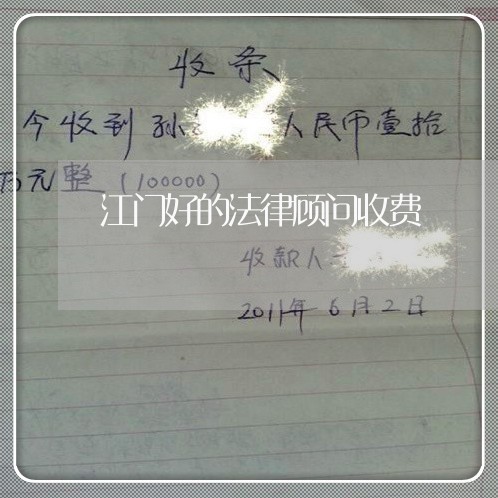 收条
今收到孙 人民币壹拾
万元整（100000）
江门好的法律顾问收费
收款人
2011年6月2日